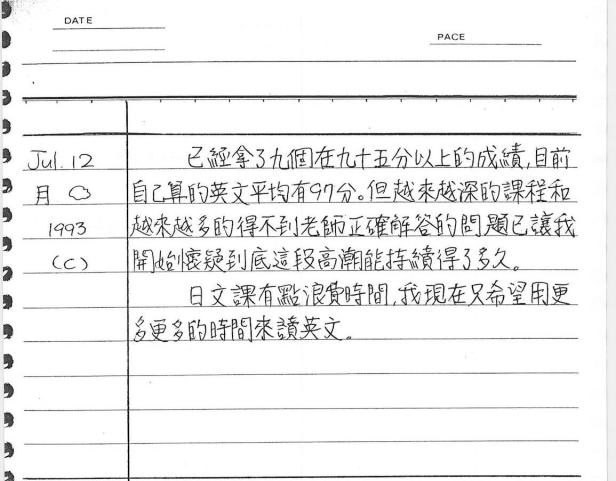 DATE
PACE
Jul. 12
月
1993
(C)
已經拿了九個在九十五分以上的成績,目前
自己算的英文平均有97分。但越來越深的課程和
越來越多的得不到老師正確解答的問題已讓我
開始懷疑到底這段高潮能持續得了多久。
日文課有點浪費時間,我現在只希望用更
多更多的時間來讀英文。